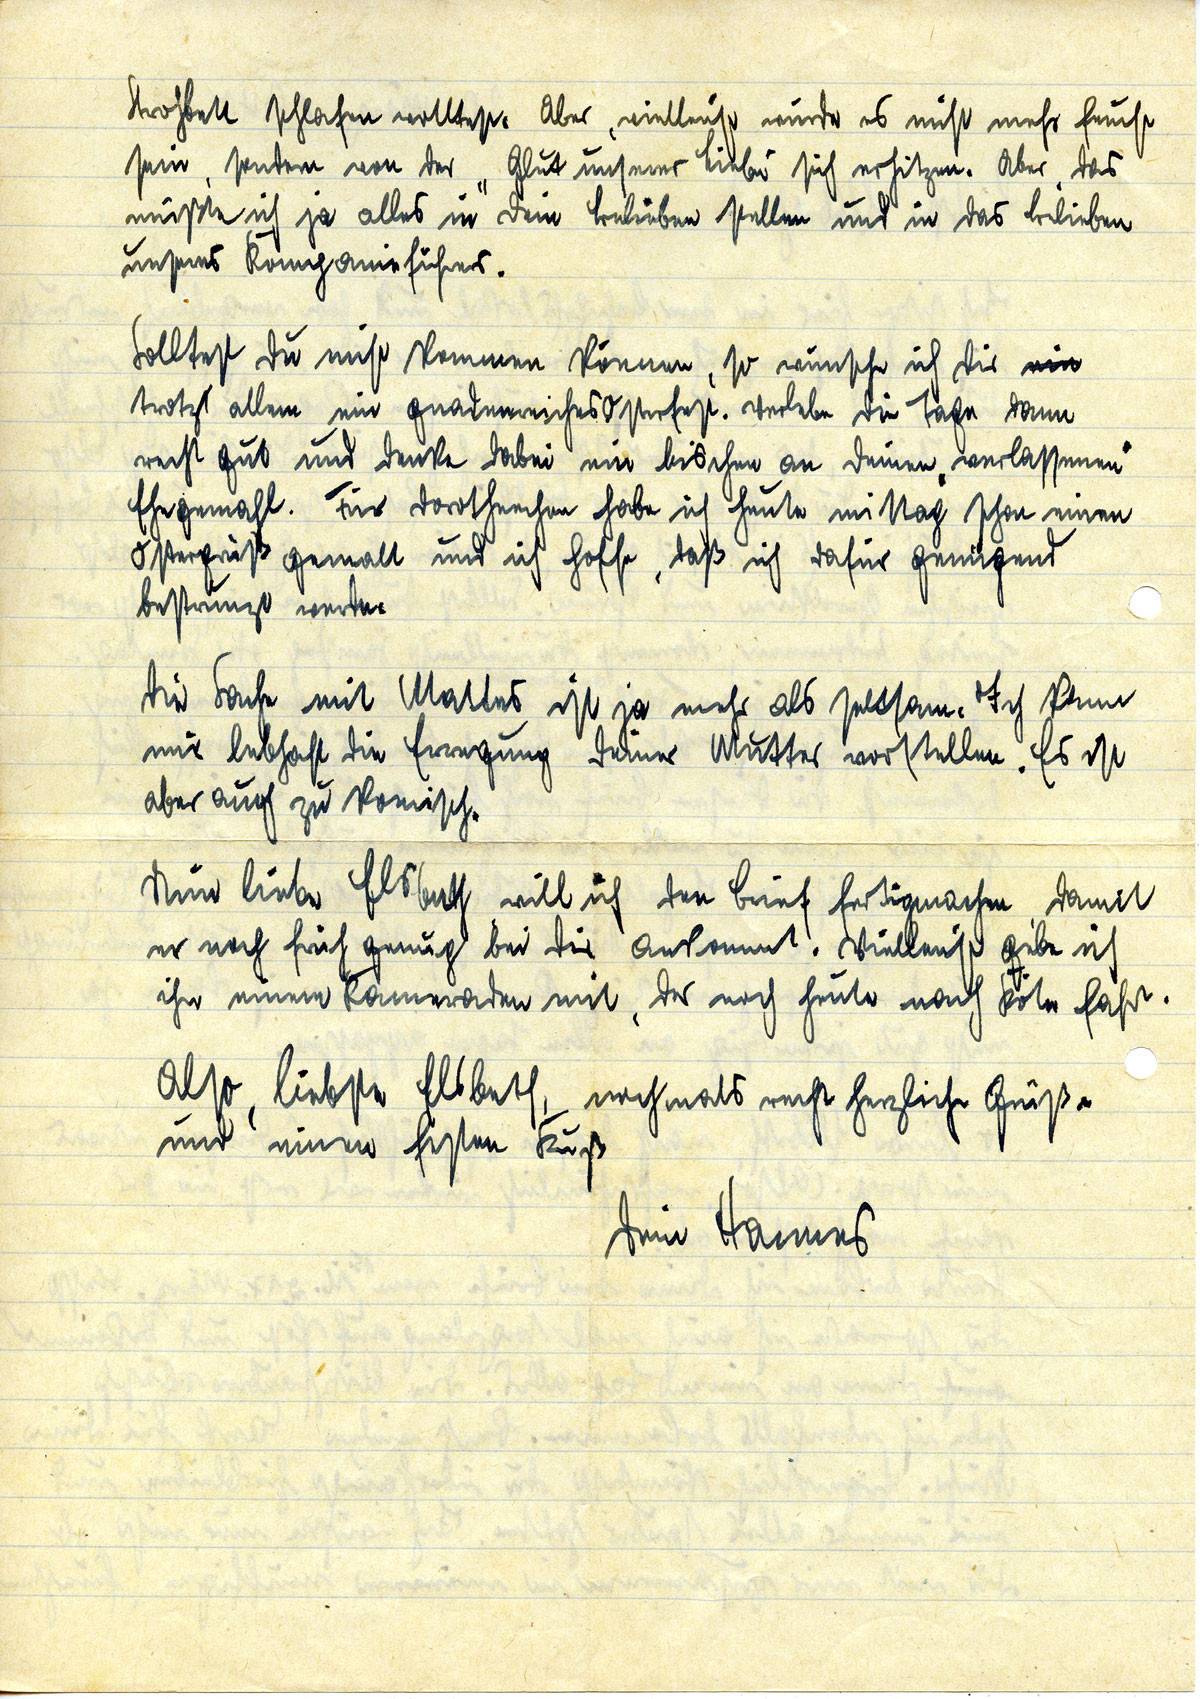 Strohbett schlafen wolltest. Aber, vielleicht würde es nicht mehr feucht
sein, sondern von der „Glut unserer Liebe" sich erhitzen. Aber, das
müßte ich ja alles in Dein belieben stellen und in das belieben
unseres Kompanieführers.
Solltest Du nicht kommen können, so wünsche ich Dir ein
trotz allem ein gnadenreiches Osterfest. Verlebe die Tage dann
recht gut und denke dabei ein bischen an Deinen „verlassenen"
Ehegemahl. Für Dorotheechen habe ich heute mittag schon einen
Ostergruß gemalt und ich hoffe, daß ich dafür genügend
bestrunzt werde.
Die Sache mit Mattes ist ja mehr als seltsam. Ich kann
mir lebhaft die Erregung Deiner Mutter vorstellen. Es ist
aber auch zu komisch.
Nun liebe Elsbeth, will ich den Brief fertigmachen, damit
er noch früh genug bei Dir ankommt. Vielleicht gebe ich
ihn einem Kameraden mit, der noch heute nach Köln fährt.
Also, liebste Elsbeth, nochmals recht herzliche Grüße
und einen festen Kuß
Dein Hannes